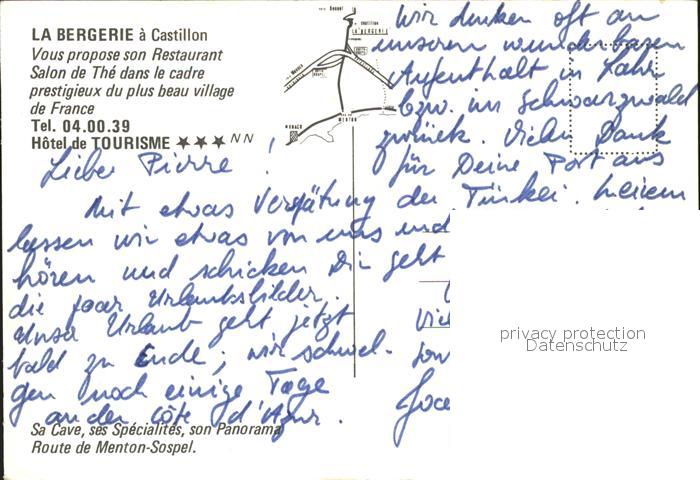 LA BERGERIE à Castillon
Vous propose son Restaurant
Salon de Thé dans le cadre
prestigieux du plus beau village
de France
Tel. 04.00.39
Hôtel de TOURISME ★★★ NN
Lieber Pierre!
Mit etwas Verspätung
lassen wir etwas von uns
hören und schicken Dir
die paar Urlaubsbilder.
Unser Urlaub geht jetzt
bald zu Ende; wir schwel-
gen noch einige Tage
an der Côte d'Azur.
Wir denken oft an
unseren wunderbaren
Aufenthalt in Lahr
bzw. im Schwarzwald
zurück. Vielen Dank
für Deine Post aus
der Türkei. Meiem
und
geht
Sa Cave, ses Spécialités, son Panorama
Route de Menton-Sospel.
privacy protection
Datenschutz